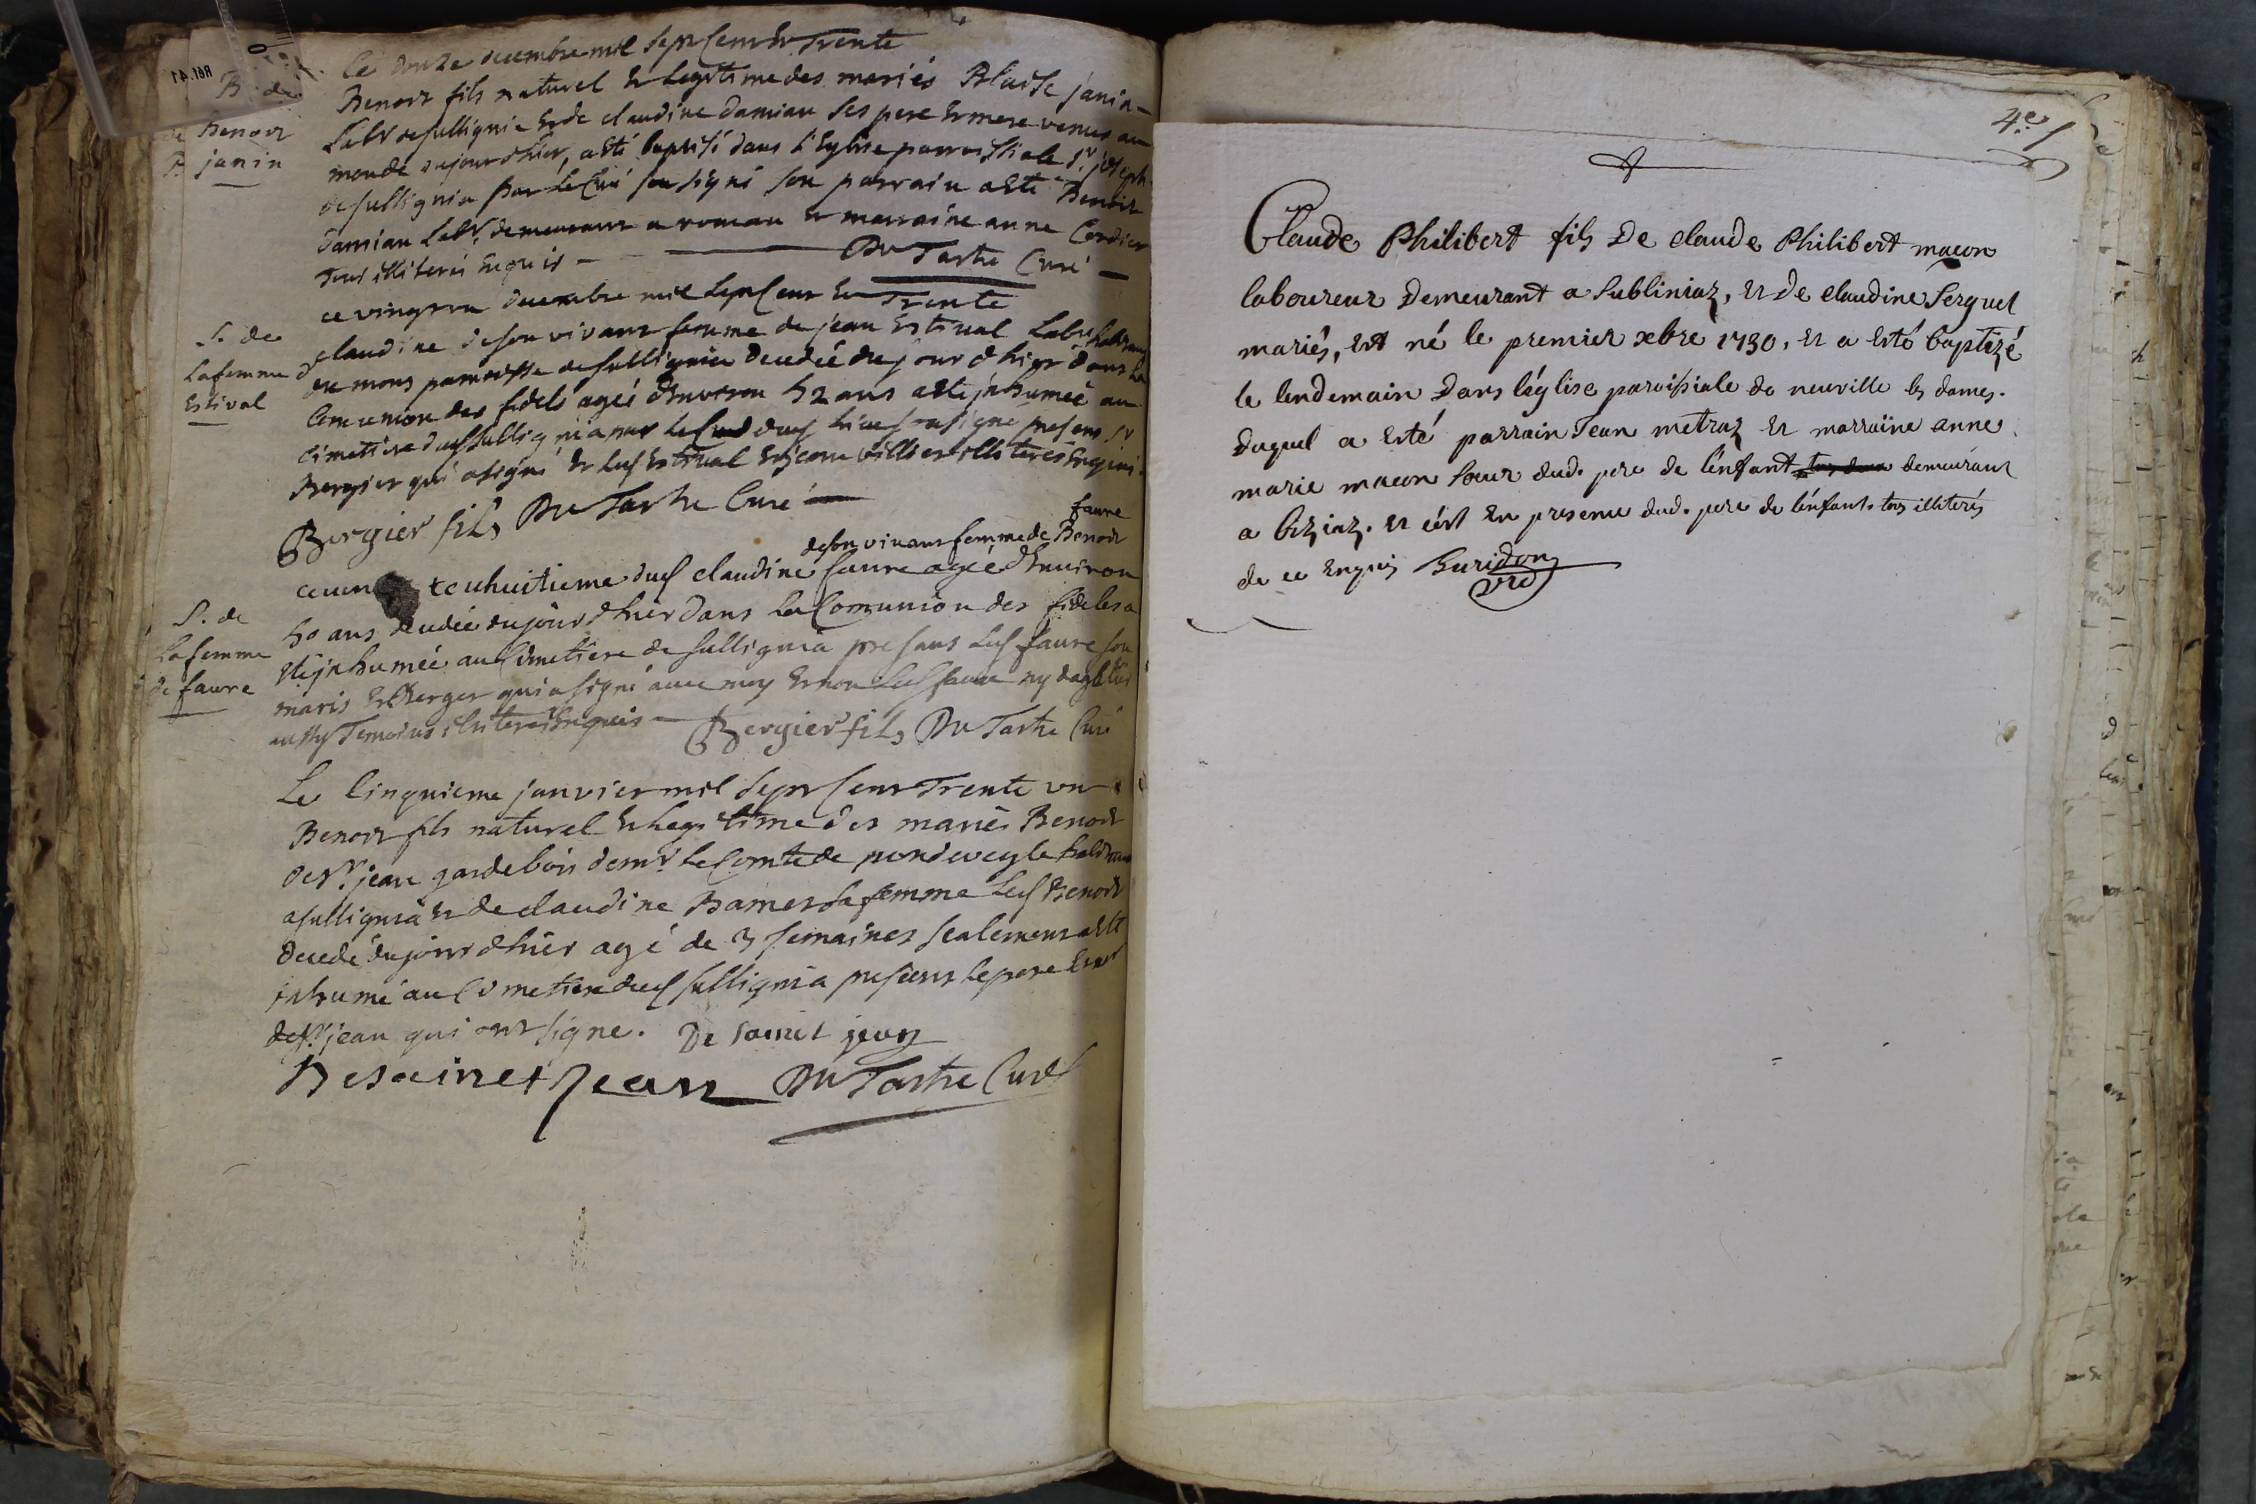 B. de
Benoit
janin
Ce douze decembre mil sept cent et Trente
Benoit fils naturel et legitime des mariés Blaise janin
Labr de sullignia et de claudine damian ses pere et mere venus au
monde dujourdhier, a esté baptisé dans l'Eglise parroissiale St joseph
de sullignia par le Curé sousigné son parrain a esté Benoit
damian Labr. demeurant a roman et marraine anne Cordier
tous illiterés enquis
Du Tartre Curé
S. de
la femme d'
Estival
ce vingt un decembre mil sept cent et Trente
claudine de son vivant femme de jean Estival Labr habitant
de mons parroisse de sullignia decedée du jour d'hier dans la
Comunion des fidels agée d'environ 52 ans a esté jnhumée au
cimetiere dud sullignia par le Curé presens
Bergier qui a signé et led Estival et illiterés enquis
Bergier fils Du Tartre Curé
S. de
la femme
de faure
faure
de son vivant femme de Benoit
huitieme dud claudine faure agée d'environ
50 ans decedée du jour d'hier dans la Comunion des fideles a
esté jnhumée au Cimetiere de sullignia presans led faure son
maris et Berger qui a signé avec moy et non led faure ny
aussy Temoins illiterés enquis Bergier fils Du Tartre Curé
Le Cinquieme janvier mil sept Cent Trente un
Benoit fils naturel et legitime des mariés Benoit
de St. jean garde bois de mr. le Comte de pondeveyle habitant
a sullignia et de claudine Bames sa femme led Benoit
decedé du jour d'hier agé de 3 semaines sealement a esté
jnhumé au Cimetiere dud sullignia presens le pere
de St. jean qui ont signe. De sainct jean
Desainct Jean Du Tartre Curé
4e
Claude Philibert fils De claude Philibert maçon
laboureur Demeurant a Subliniaz, et De claudine Serquet
mariés, est né le premier xbre 1730, et a esté baptizé
le lendemain Dans l'église paroissiale de neuville les dames.
Duquel a esté parrain Jean metraz et marraine anne
marie macon soeur dud. pere de l'enfant demeurant
a biziaz. et c'est en presence dud. pere de l'enfant. tous illiterés
de ce enquis Buridon
vre